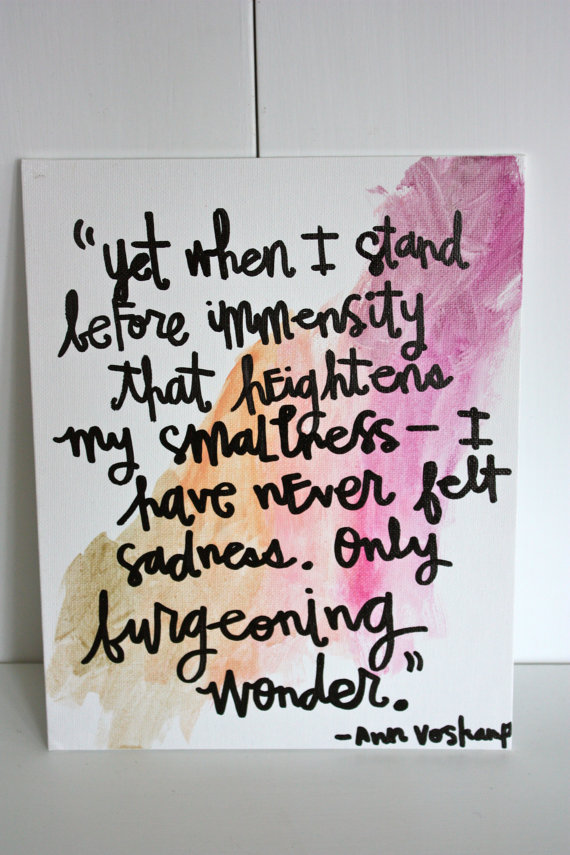 "yet when I stand
before immensity
that heightens
my smallness - I
have never felt
sadness. only
burgeoning
wonder."
- Ann Voskamp